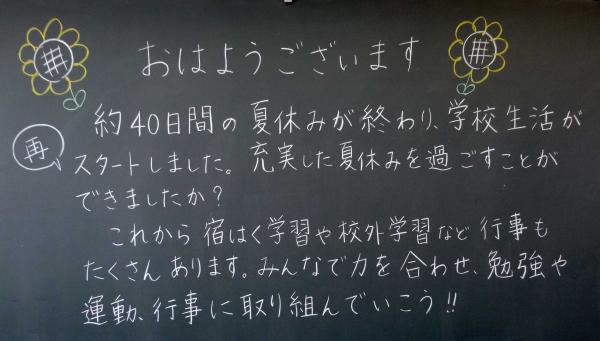 おはようございます
約40日間の夏休みが終わり、学校生活が
再
スタートしました。充実した夏休みを過ごすことが
できましたか？
これから宿はく学習や校外学習など行事も
たくさんあります。みんなで力を合わせ、勉強や
運動、行事に取り組んでいこう!!